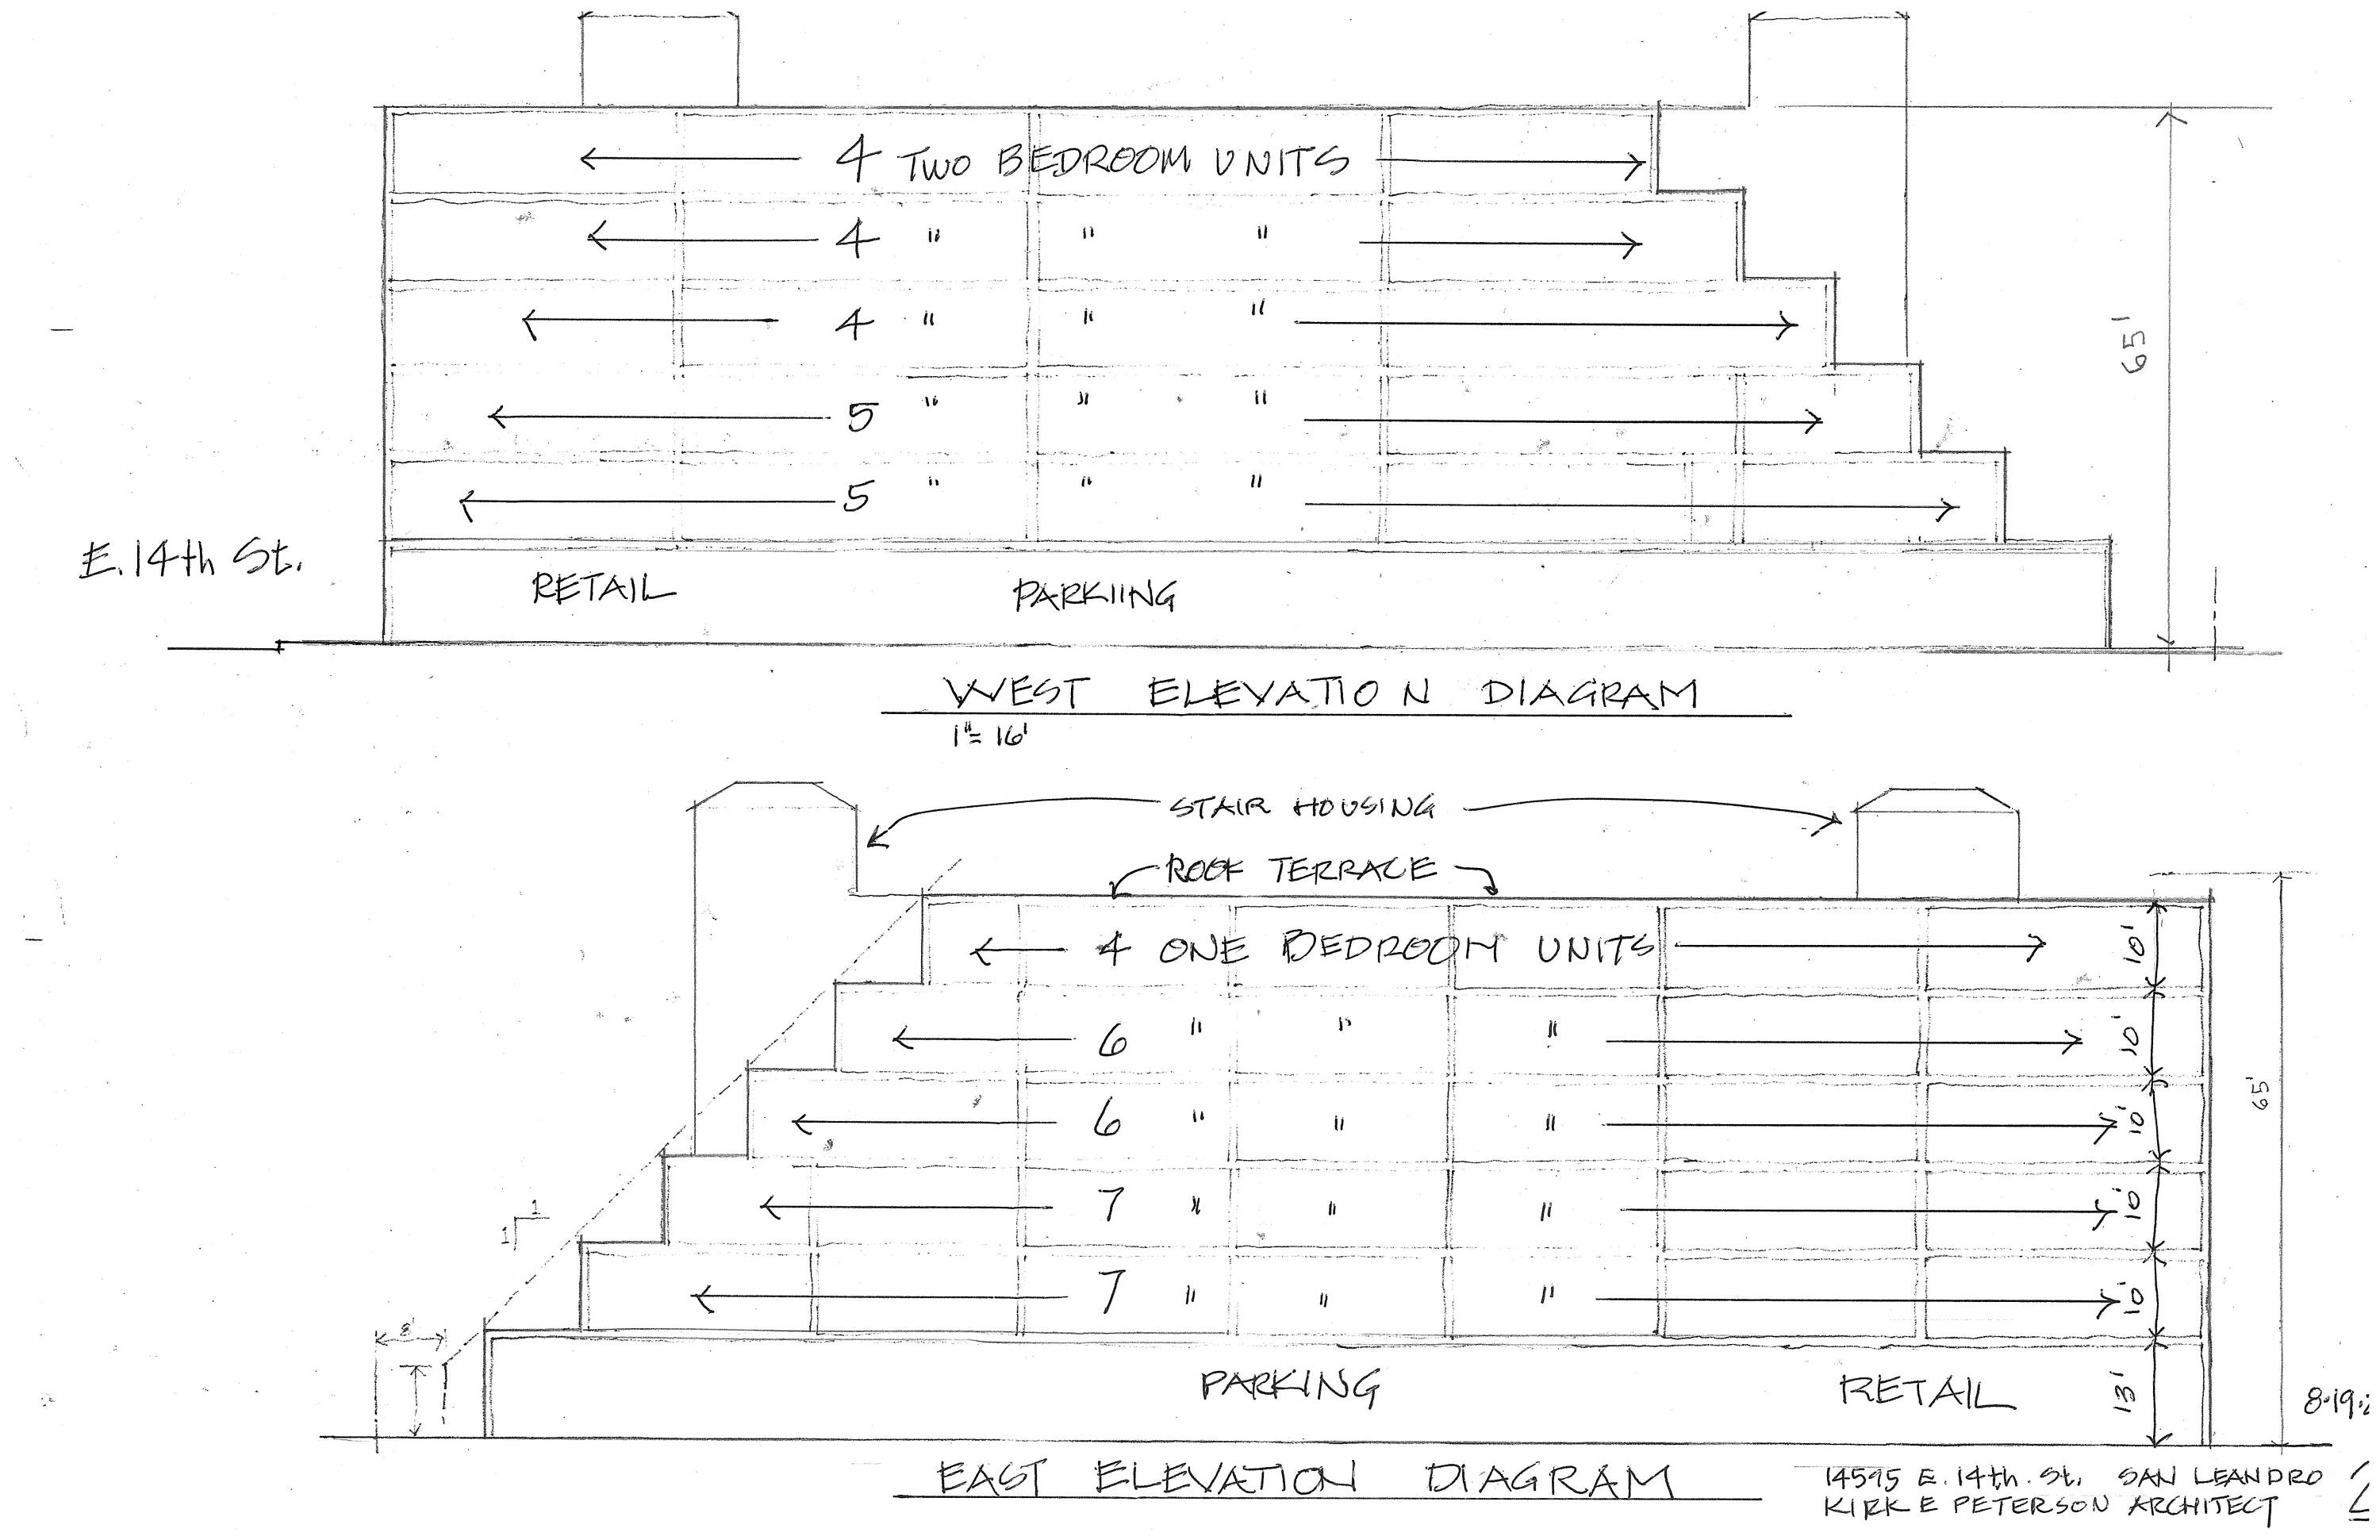 ← 4 TWO BEDROOM UNITS →
← 4 " " " →
← 4 " " " →
65'
← 5 " " " →
← 5 " " " →
E. 14th St.
RETAIL PARKIING
WEST ELEVATION DIAGRAM
1"= 16'
STAIR HOUSING
ROOF TERRACE
← 4 ONE BEDROOM UNITS → 10'
← 6 " " " → 10'
← 6 " " " → 10'
65'
← 7 " " " → 10'
1
1
← 7 " " " → 10'
8'
PARKING RETAIL 13'
8.19.
EAST ELEVATION DIAGRAM
14595 E. 14th. St. SAN LEANDRO
KIRK E PETERSON ARCHITECT
2